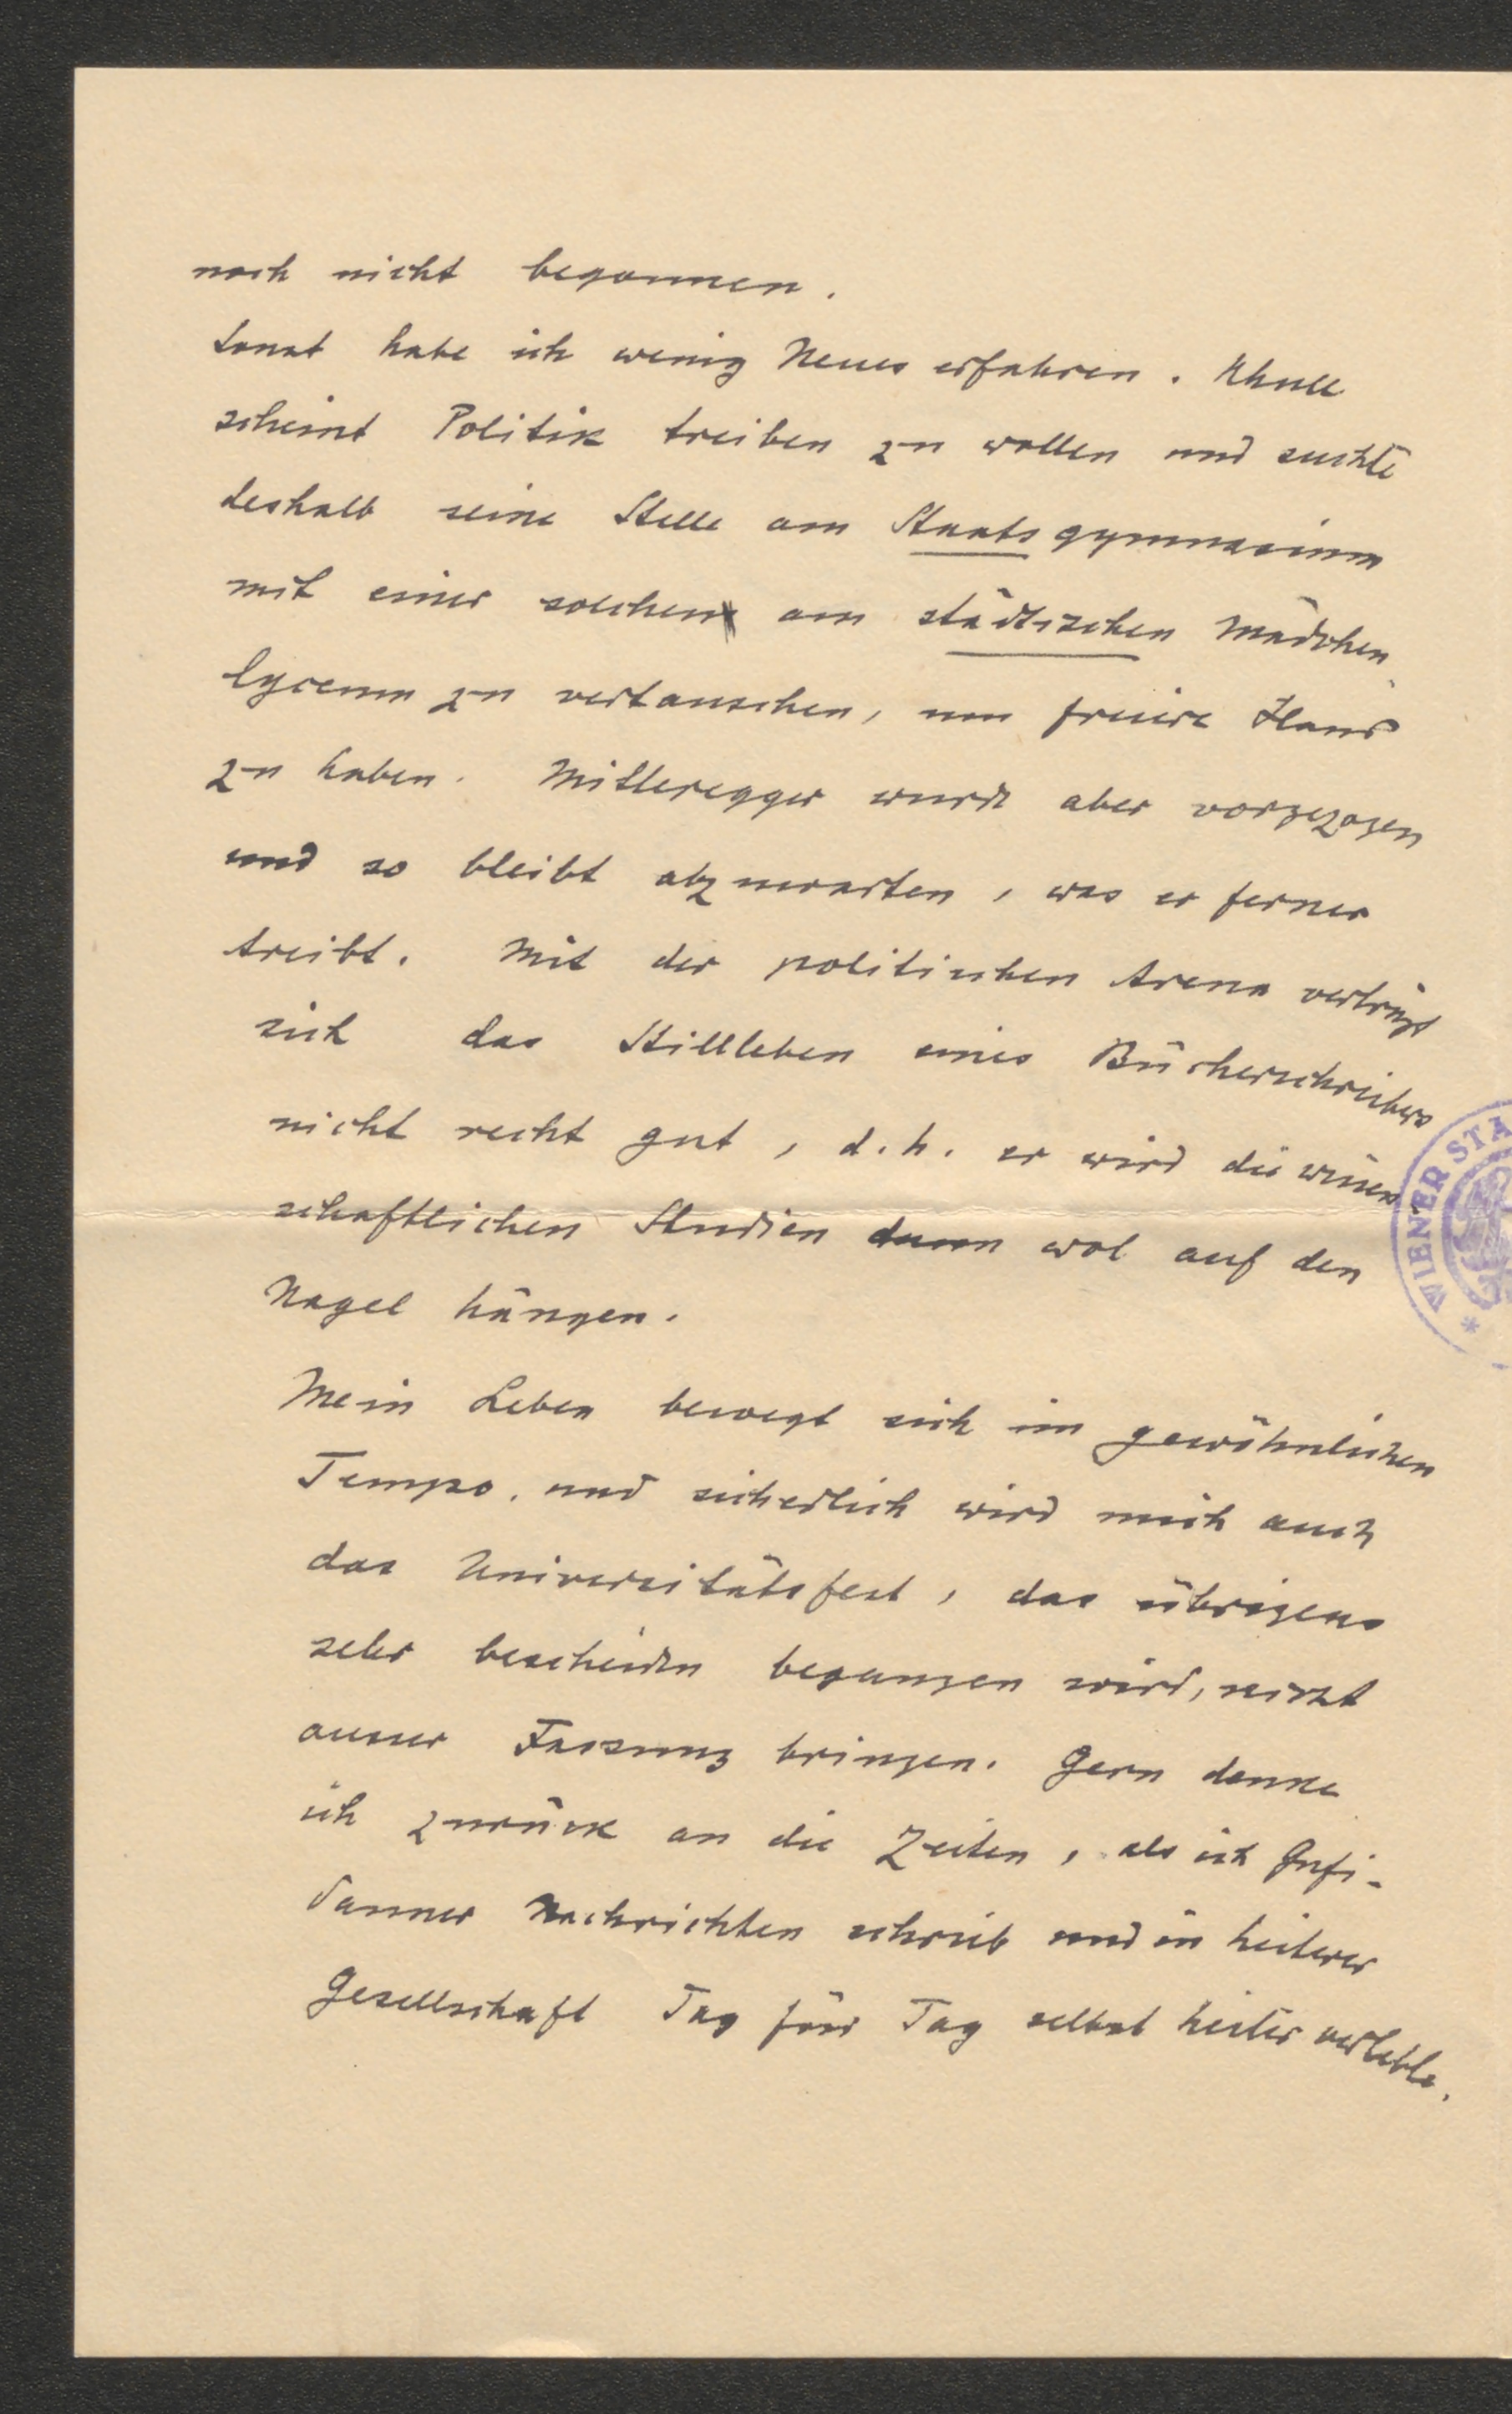 noch nicht begonnen.
Sonst habe ich wenig Neues erfahren. Khull
scheint Politik treiben zu wollen und suchte
deshalb seine Stelle am Staatsgymnasium
mit einer solchen am städtischen Mädchen
lyceum zu vertauschen, um freiere Hand
zu haben. Mitteregger wurde aber vorgezogen
und so bleibt abzuwarten, was er ferner
treibt. Mit der politischen Arena verträgt
sich das Stillleben eines Bücherschreibers
nicht recht gut, d.h. er wird die wissen
schaftlichen Studien dann wol auf den
Nagel hängen.
Mein Leben bewegt sich im gewöhnlichen
Tempo, und sicherlich wird mich auch
das Universitätsfest, das übrigens
sehr bescheiden begangen wird, nicht
ausser Fassung bringen. Gern denke
ich zurück an die Zeiten, als ich Gufi-
dauner Nachrichten schrieb und in heiterer
Gesellschaft Tag für Tag selbst heiter verlebte.
WIENER STA